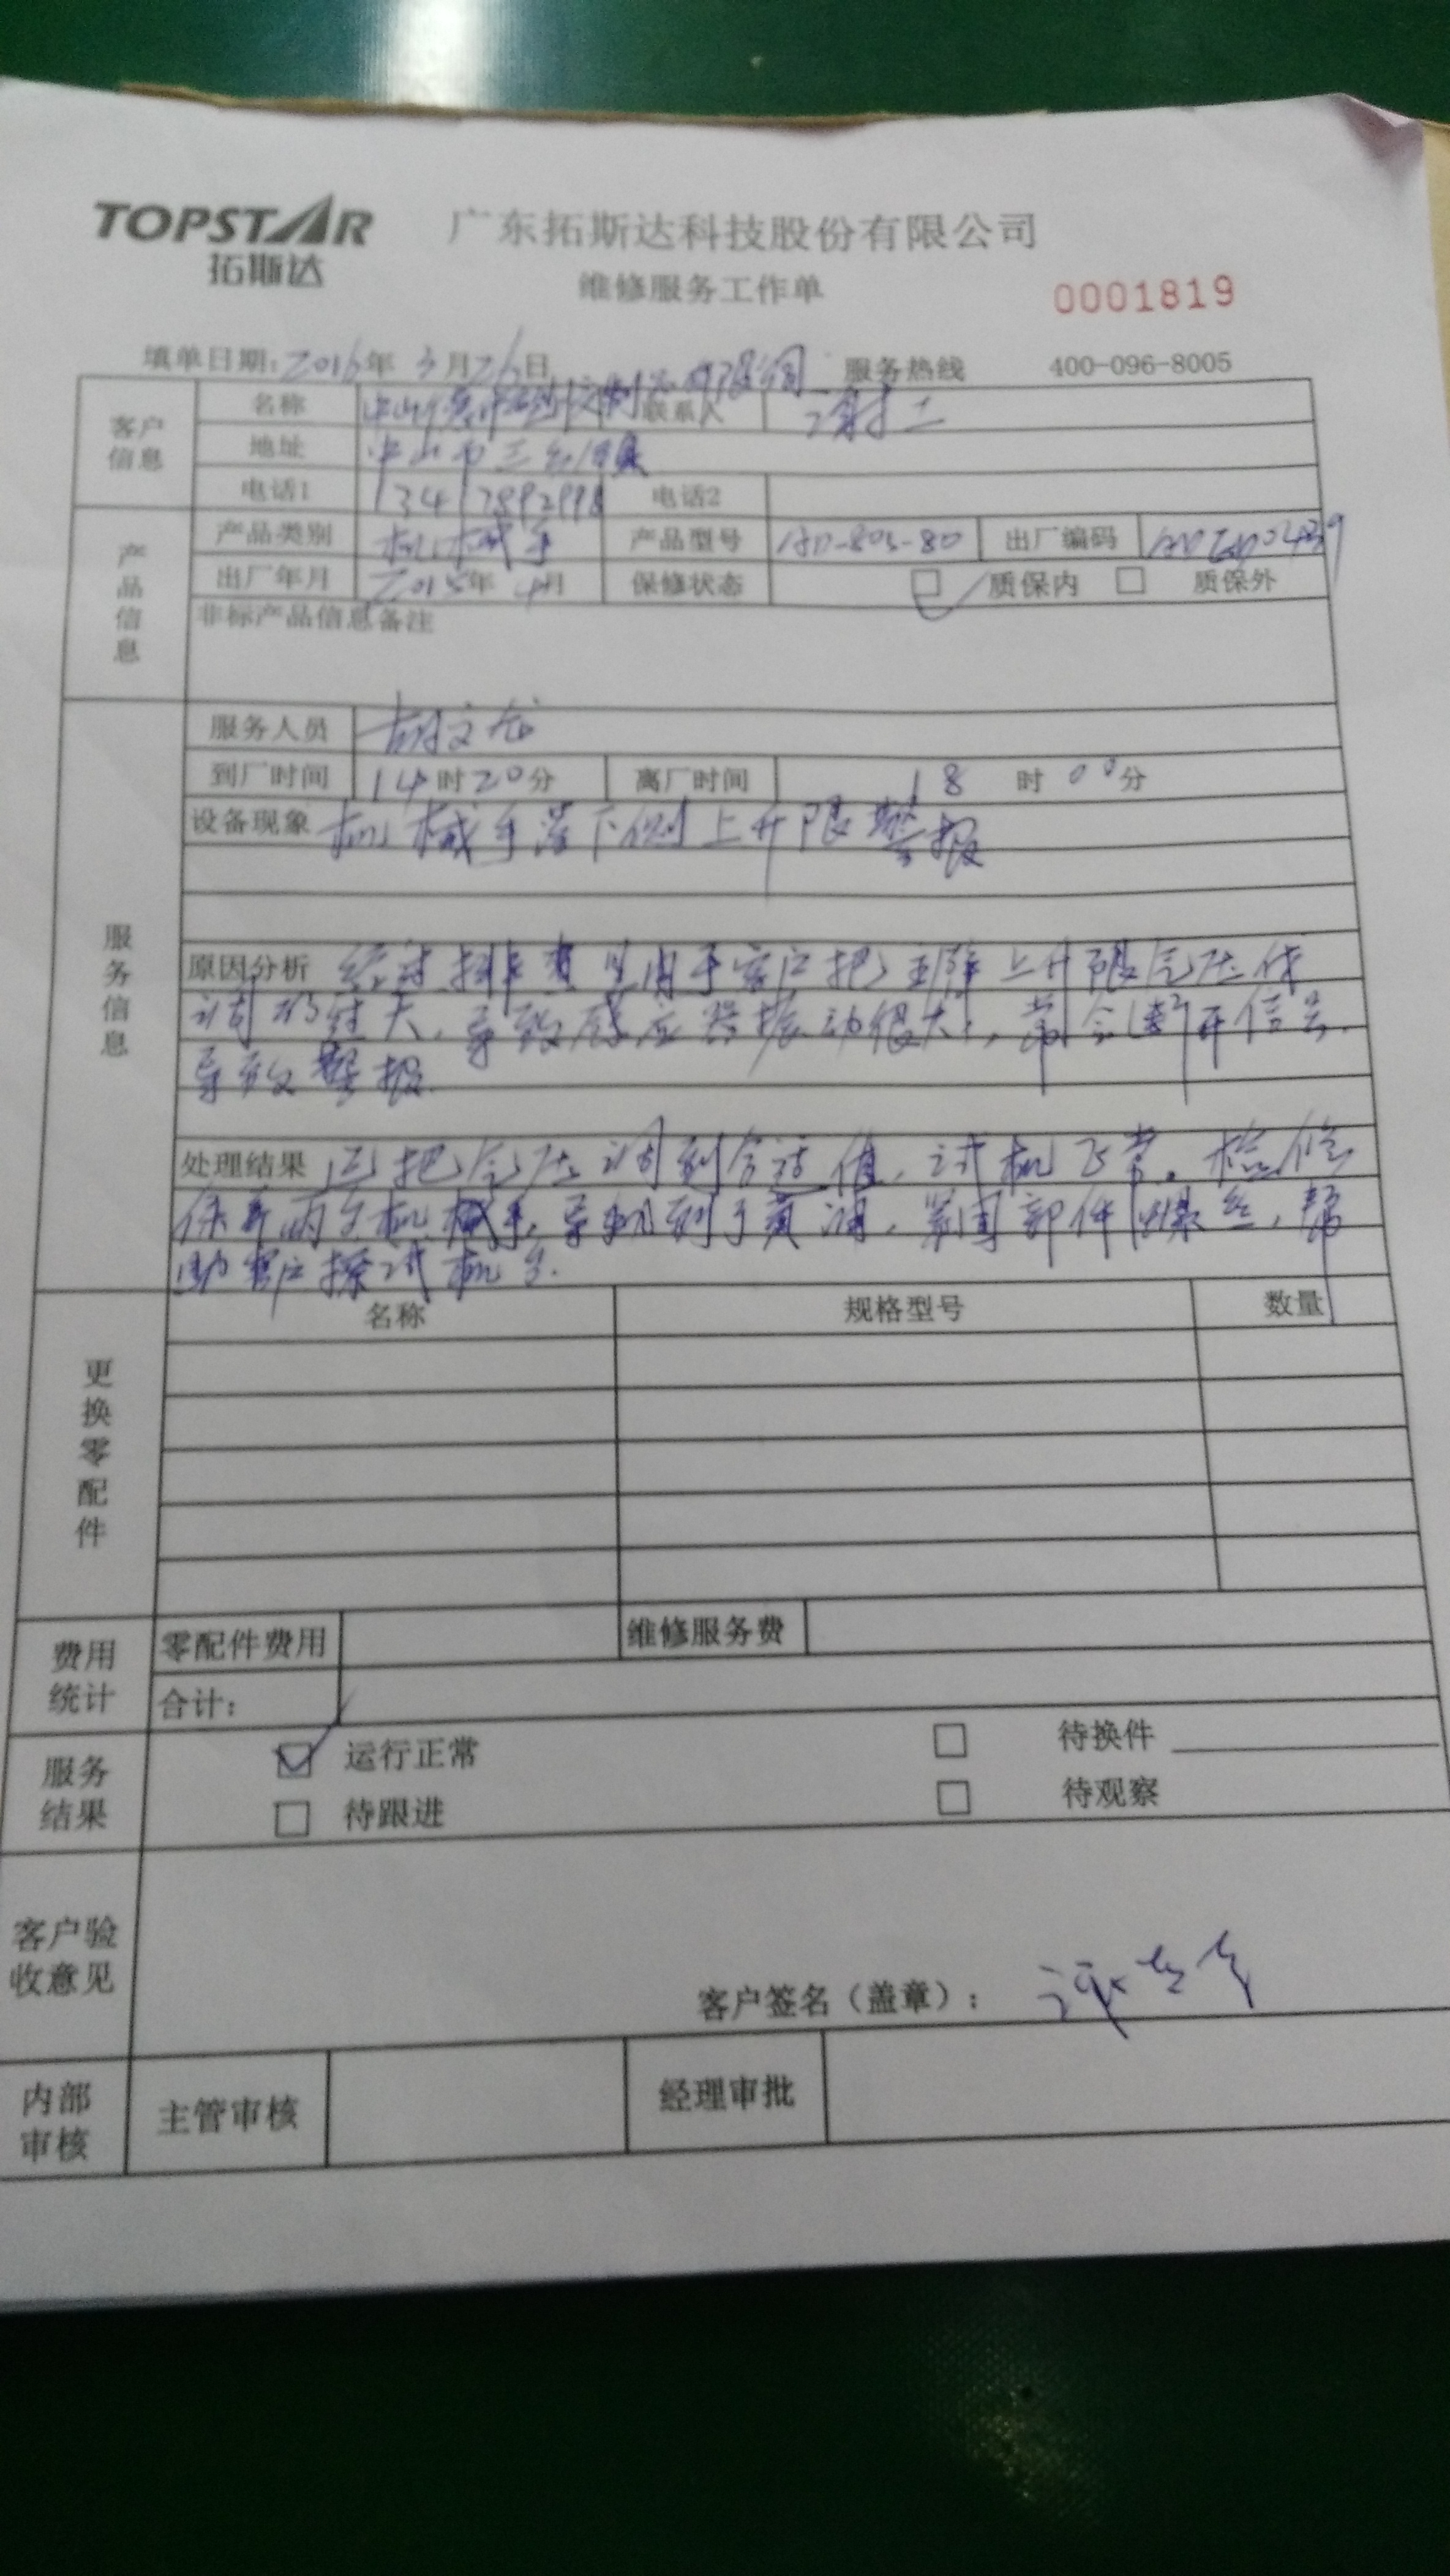 TOPSTAR
拓斯达
广东拓斯达科技股份有限公司
维修服务工作单
0001819
填单日期: 2016年 3月26日 服务热线 400-096-8005
客户信息
名称 中山 有限公司 联系人
地址 中山市三
电话1 13417892998 电话2
产品信息
产品类别 机械手 产品型号 -80 出厂编码
出厂年月 2015年 4月 保修状态 质保内 质保外
非标产品信息备注
服务信息
服务人员 胡文龙
到厂时间 14时20分 离厂时间 18时00分
设备现象 机械手 下侧上升限警报
原因分析 经过排查 由于客户把 上升限气压
调得过大,导致感应器振动很大,常会断开信号
导致警报.
处理结果 已把气压调到合适值,试机正常。检修
保养两台机械手,导轨 黄油,紧固部件螺丝,帮
助客户 试机台.
更换零配件
名称 规格型号 数量
费用统计
零配件费用 维修服务费
合计:
服务结果
运行正常 待换件
待跟进 待观察
客户验收意见
客户签名(盖章):
内部审核
主管审核 经理审批